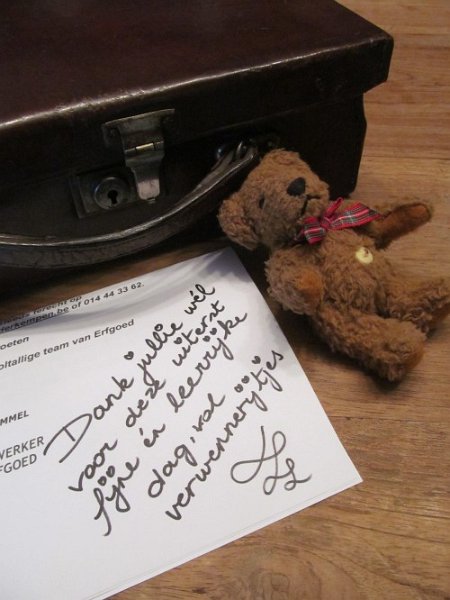 terecht op
erkempen.be of 014 44 33 62.
oeten
oltallige team van Erfgoed
MMEL
WERKER
FGOED
Dank jullie wél
voor deze uiterst
fijne én leerrijke
dag, vol
verwennerijtjes